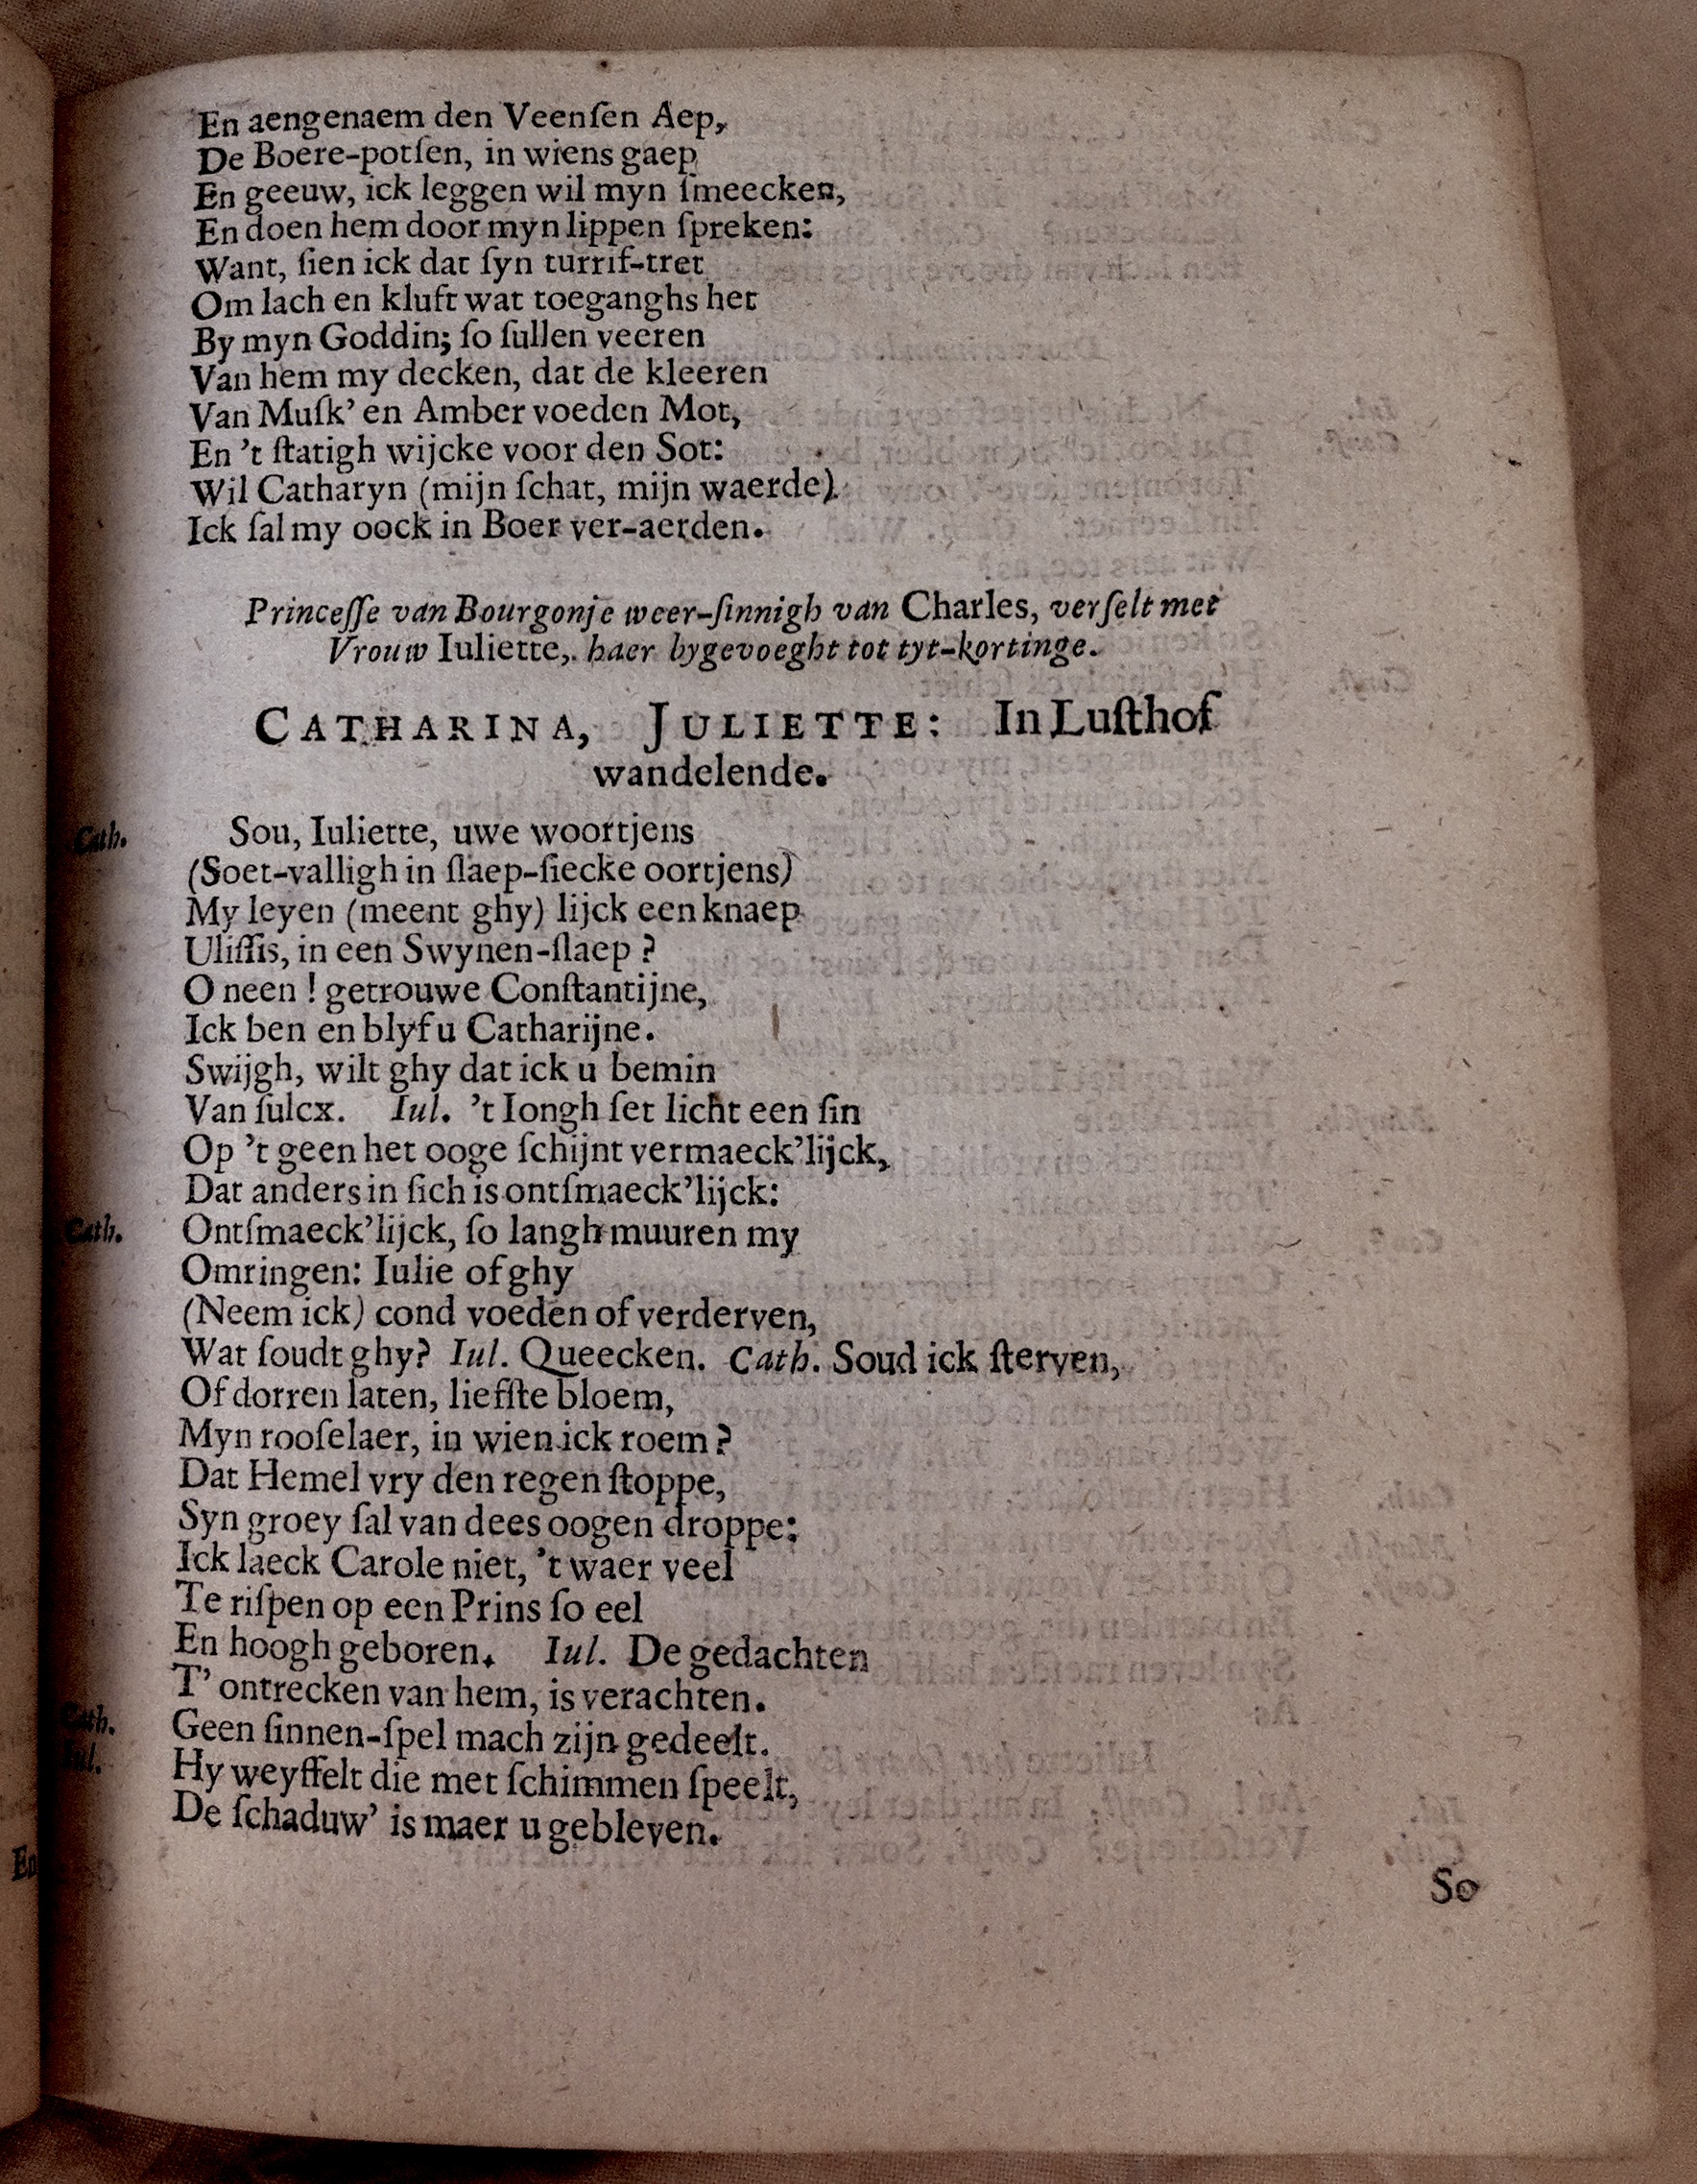 En aengenaem den Veenſen Aep,
De Boere-potſen, in wiens gaep
En geeuw, ick leggen wil myn ſmeecken,
En doen hem door myn lippen ſpreken:
Want, ſien ick dat ſyn turrif-tret
Om lach en kluft wat toeganghs het
By myn Goddin; ſo ſullen veeren
Van hem my decken, dat de kleeren
Van Muſk' en Amber voeden Mot,
En 't ſtatigh wijcke voor den Sot:
Wil Catharyn (mijn ſchat, mijn waerde)
Ick ſal my oock in Boer ver-aerden.
Princeſſe van Bourgonje weer-ſinnigh van Charles, verſelt met
Vrouw Iuliette, haer bygevoeght tot tyt-kortinge.
CATHARINA, JULIETTE: In Luſthof
wandelende.
Cath. Sou, Iuliette, uwe woortjens
(Soet-valligh in ſlaep-ſiecke oortjens)
My leyen (meent ghy) lijck een knaep
Uliſſis, in een Swynen-ſlaep?
O neen! getrouwe Conſtantijne,
Ick ben en blyf u Catharijne.
Swijgh, wilt ghy dat ick u bemin
Van ſulcx. Iul. 't Iongh ſet licht een ſin
Op 't geen het ooge ſchijnt vermaeck'lijck,
Dat anders in ſich is ontſmaeck'lijck:
Cath. Ontſmaeck'lijck, ſo langh muuren my
Omringen: Iulie of ghy
(Neem ick) cond voeden of verderven,
Wat ſoudt ghy? Iul. Queecken. Cath. Soud ick ſterven,
Of dorren laten, liefſte bloem,
Myn rooſelaer, in wien ick roem?
Dat Hemel vry den regen ſtoppe,
Syn groey ſal van dees oogen droppe:
Ick laeck Carole niet, 't waer veel
Te riſpen op een Prins ſo eel
En hoogh geboren. Iul. De gedachten
T' ontrecken van hem, is verachten.
Cath. Geen ſinnen-ſpel mach zijn gedeelt.
Iul. Hy weyffelt die met ſchimmen ſpeelt,
De ſchaduw' is maer u gebleven.
So